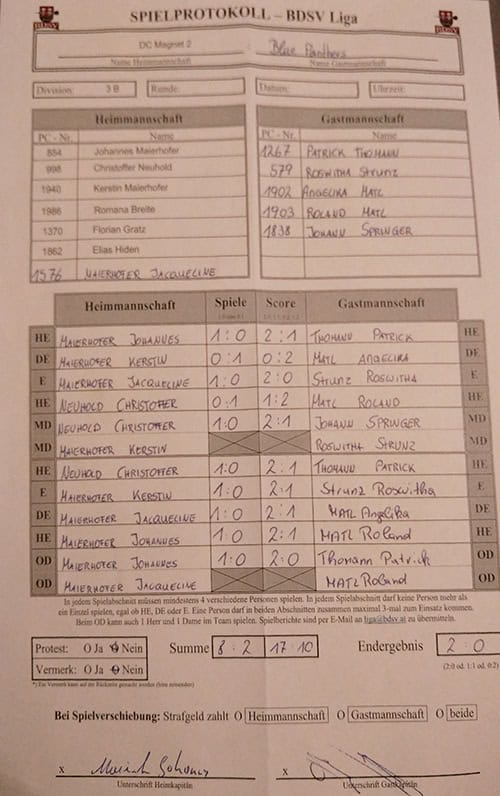 SPIELPROTOKOLL – BDSV Liga
BDSV BDSV
DC Magnet 2 : Blue Panthers
Name Heimmannschaft Name Gastmannschaft
Division: 3 B Runde: Datum: Uhrzeit:
Heimmannschaft Gastmannschaft
PC - Nr. Name PC - Nr. Name
884 Johannes Maierhofer 1267 PATRICK THOMANN
998 Christoffer Neuhold 579 ROSWITHA STRUNZ
1940 Kerstin Maierhofer 1902 ANGELIKA MATL
1986 Romana Breite 1903 ROLAND MATL
1370 Florian Gratz 1838 JOHANN SPRINGER
1862 Elias Hiden
1576 MAIERHOFER JACQUELINE
Heimmannschaft Spiele Score Gastmannschaft
HE MAIERHOFER JOHANNES 1:0 2:1 THOMANN PATRICK HE
DE MAIERHOFER KERSTIN 0:1 0:2 MATL ANGELIKA DE
E MAIERHOFER JACQUELINE 1:0 2:0 STRUNZ ROSWITHA E
HE NEUHOLD CHRISTOFFER 0:1 1:2 MATL ROLAND HE
MD NEUHOLD CHRISTOFFER 1:0 2:1 JOHANN SPRINGER MD
MD MAIERHOFER KERSTIN ROSWITHA STRUNZ MD
HE NEUHOLD CHRISTOFFER 1:0 2:1 THOMANN PATRICK HE
E MAIERHOFER KERSTIN 1:0 2:1 Strunz Roswitha E
DE MAIERHOFER JACQUELINE 1:0 2:1 MATL Angelika DE
HE MAIERHOFER JOHANNES 1:0 2:1 MATL Roland HE
OD MAIERHOFER JOHANNES 1:0 2:0 Thomann Patrick OD
OD MAIERHOFER JACQUELINE MATL Roland OD
In jedem Spielabschnitt müssen mindestens 4 verschiedene Personen spielen. In jedem Spielabschnitt darf keine Person mehr als
ein Einzel spielen, egal ob HE, DE oder E. Eine Person darf in beiden Abschnitten zusammen maximal 3-mal zum Einsatz kommen.
Beim OD kann auch 1 Herr und 1 Dame im Team spielen. Spielberichte sind per E-Mail an liga@bdsv.at zu übermitteln.
Protest: O Ja O Nein Summe 8:2 17:10 Endergebnis 2:0
Vermerk: O Ja O Nein (2:0 od. 1:1 od. 0:2)
*) Ein Vermerk kann auf der Rückseite gemacht werden (bitte ankreuzen)
Bei Spielverschiebung: Strafgeld zahlt O Heimmannschaft O Gastmannschaft O beide
x x
Unterschrift Heimkapitän Unterschrift Gastkapitän